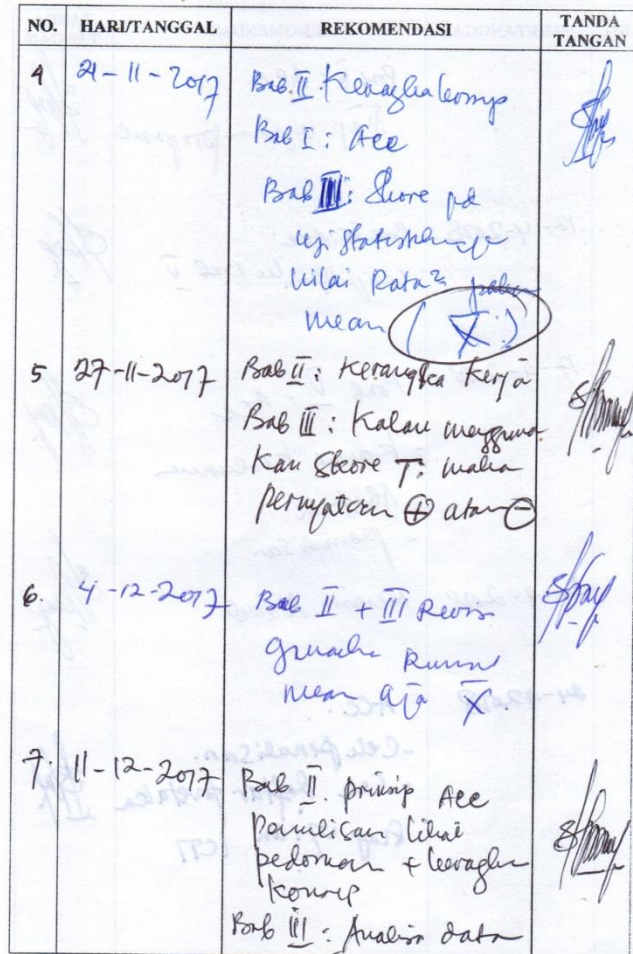 NO. HARI/TANGGAL REKOMENDASI TANDA TANGAN
4 21-11-2017 Bab. II. Kerangka konsep
Bab I : Acc
Bab III : Skore pd
uji statistiknya
nilai Rata²
mean ( X̄ )
5 27-11-2017 Bab II : Kerangka Kerja
Bab III : Kalau mengguna
kan Skore T: maka
pernyataan ⊕ atau ⊖
6. 4-12-2017 Bab II + III Revisi
gunakan Rumus
mean aja X̄
7. 11-12-2017 Bab II. prinsip Acc
Penulisan lihat
pedoman + kerangka
konsep
Bab III : Analisa data